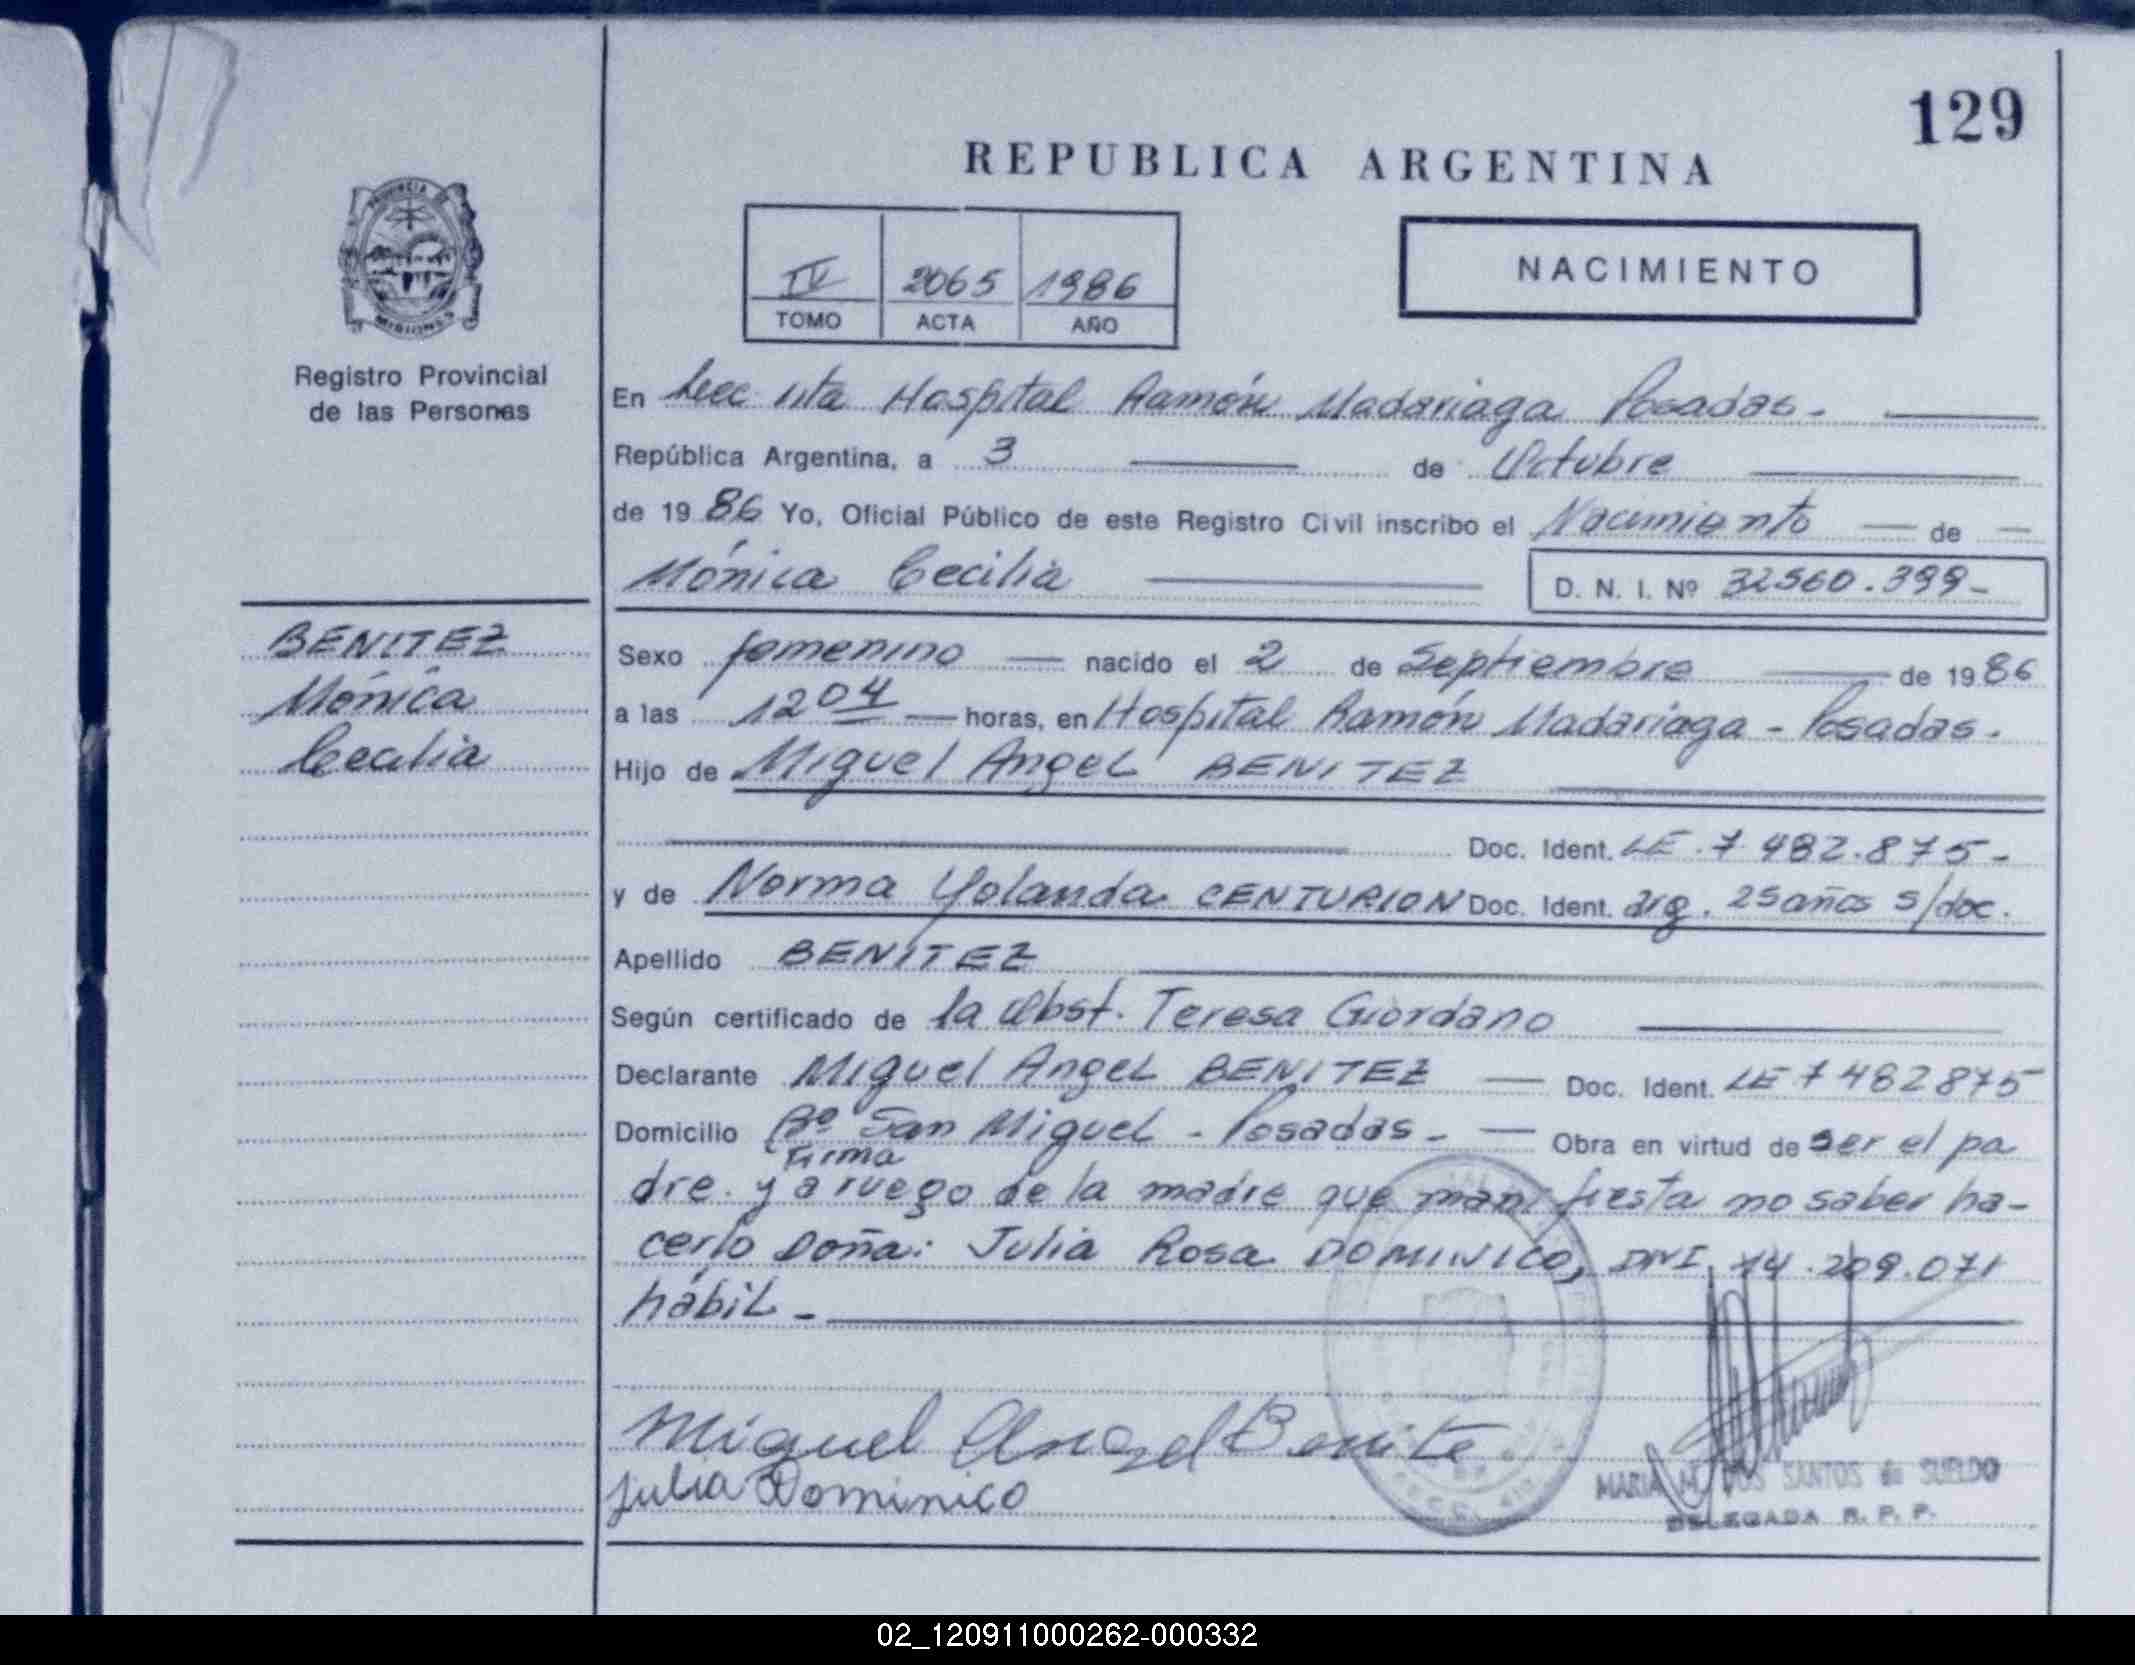 129
REPUBLICA ARGENTINA
PROVINCIA DE
MISIONES
Registro Provincial
de las Personas
IV 2065 1986
TOMO ACTA AÑO
NACIMIENTO
En Secc nta Hospital Ramón Madariaga Posadas.
República Argentina, a 3 de Octubre
de 1986 Yo, Oficial Público de este Registro Civil inscribo el Nacimiento de
Mónica Cecilia
D. N. I. Nº 32560.399-
BENITEZ
Mónica
Cecilia
Sexo femenino nacido el 2 de Septiembre de 1986
a las 12 04 horas, en Hospital Ramón Madariaga - Posadas.
Hijo de Miguel Angel BENITEZ
Doc. Ident. LE 7 482.875-
y de Norma Yolanda CENTURION Doc. Ident. arg. 25 años s/doc.
Apellido BENITEZ
Según certificado de la Obst. Teresa Giordano
Declarante Miguel Angel BENITEZ Doc. Ident. LE 7482875
Domicilio Bº San Miguel - Posadas - Obra en virtud de ser el pa
firma
dre. y a ruego de la madre que manifiesta no saber ha-
cerlo Doña: Julia Rosa DOMINICO, DNI. 14.209.071
hábil -
Miguel Angel Benite
Julia Dominico
MARIA M. DOS SANTOS de SUELDO
DELEGADA R. P. P.
02_120911000262-000332